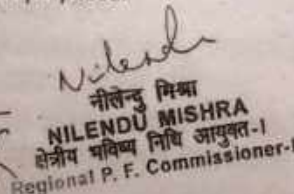 Nilendu
नीलेन्दु मिश्रा
NILENDU MISHRA
क्षेत्रीय भविष्य निधि आयुक्त-I
Regional P. F. Commissioner-I